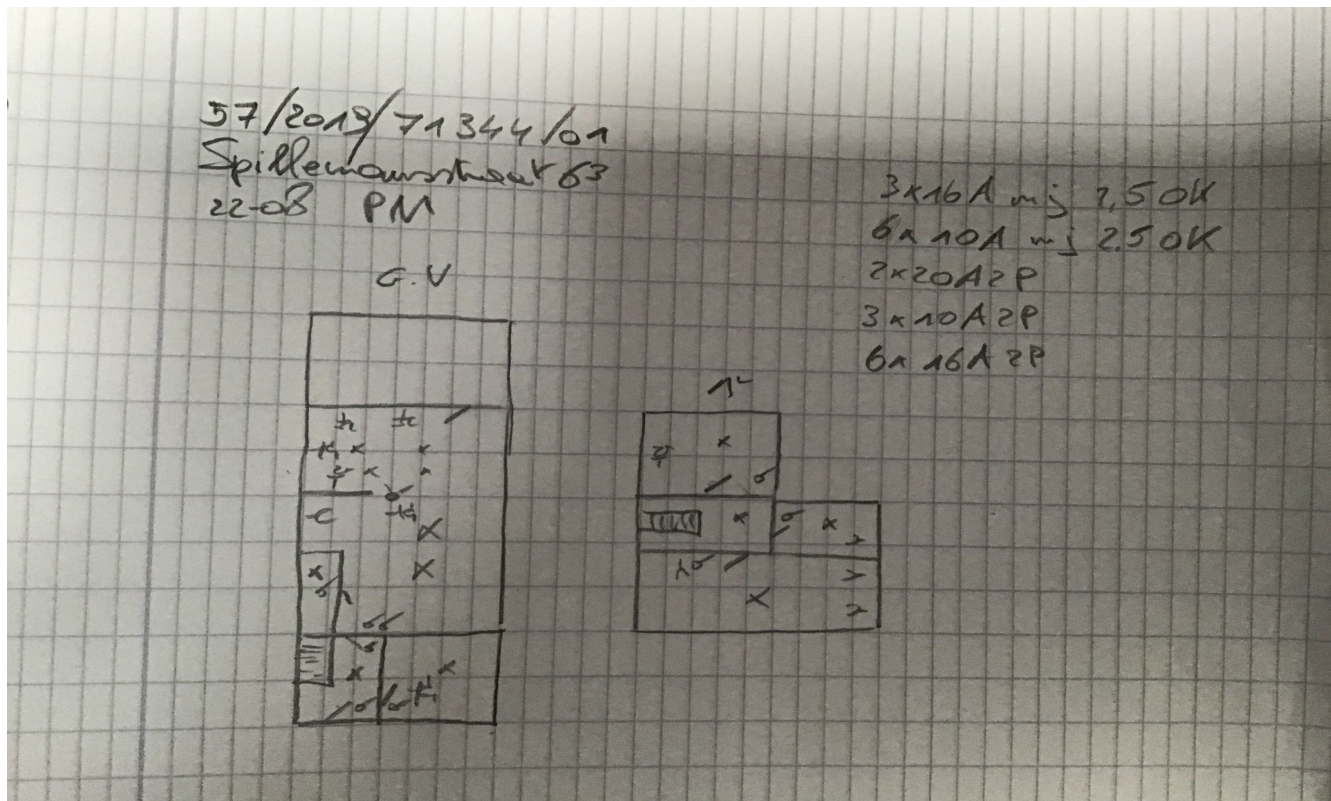 57/2019/71344/01
Spillemansstraat 63
22-08 PM
G.V
3x16A mj 2,5 OK
6x10A mj 2.5 OK
2x20A 2P
3x10A 2P
6x16A 2P
1e